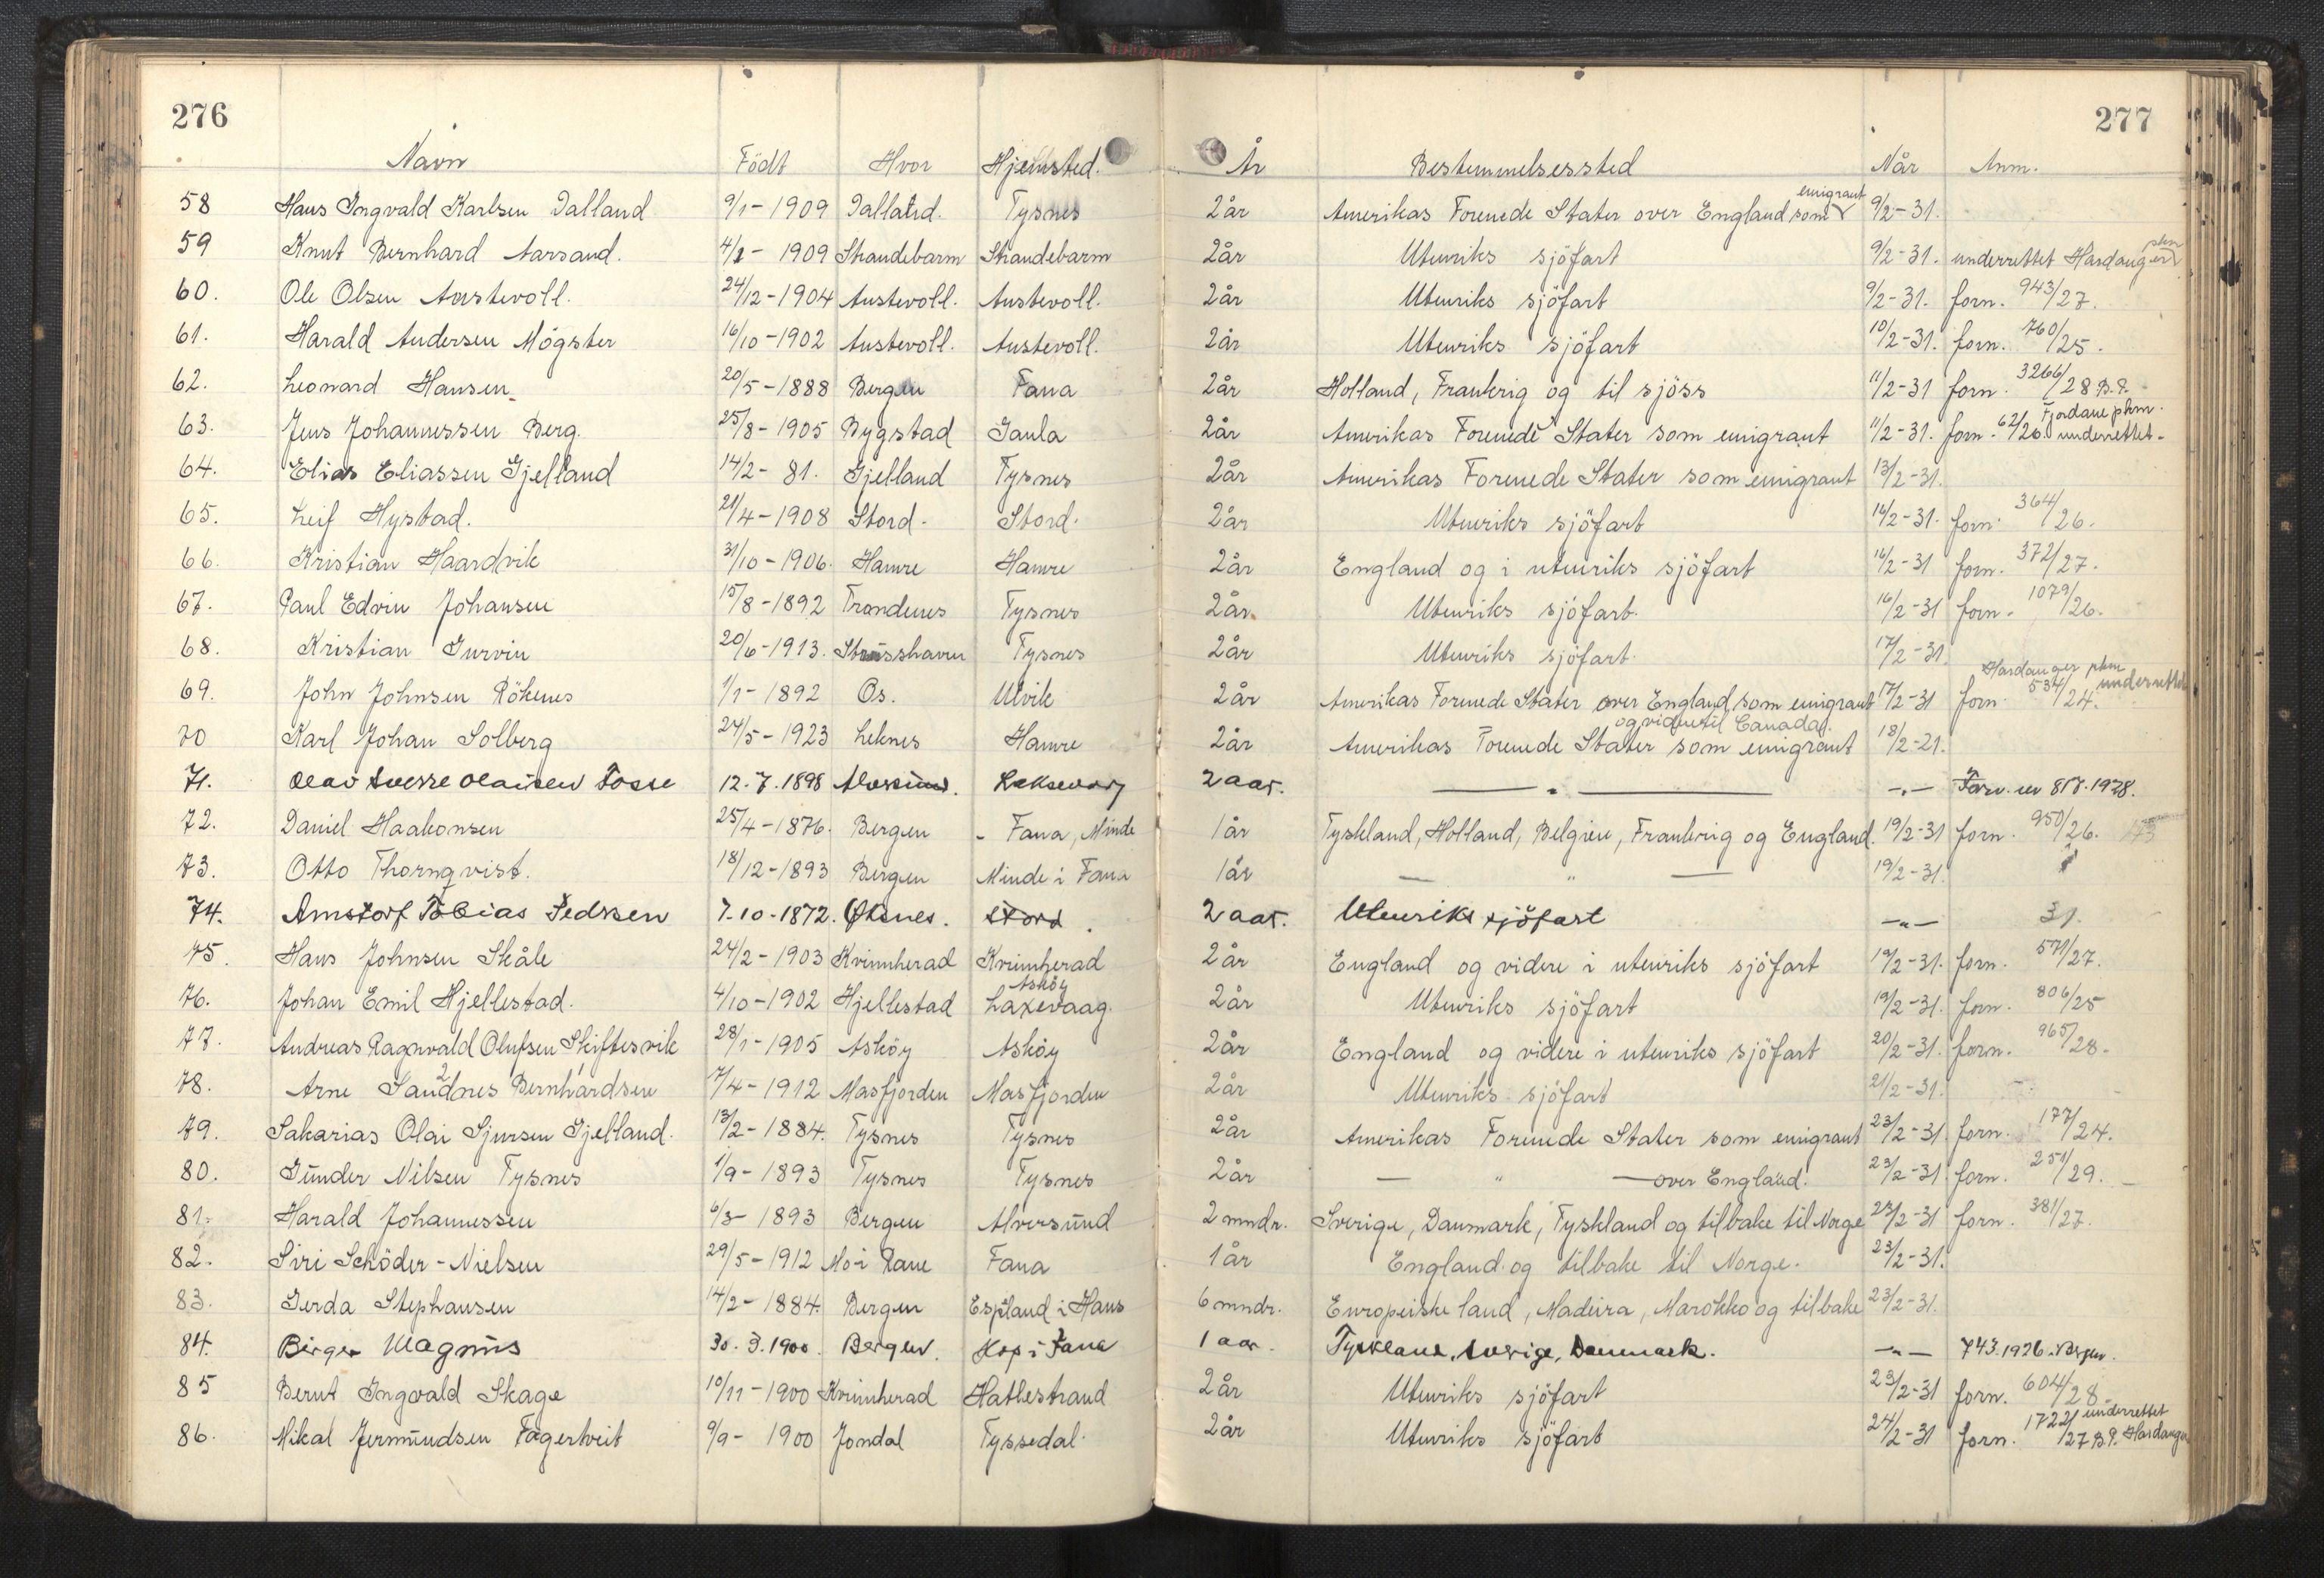 276
277
Navn Födt Hvor Hjemsted. År Bestemmelsessted Når Anm.
58 Hans Ingvald Karlsen Dalland 9/1-1909 Dalland. Tysnes 2år Amerikas Forenede Stater over England som emigrant 9/2-31.
59 Knut Bernhard Aarsand. 4/2-1909 Strandebarm Strandebarm 2år Utenriks sjöfart 9/2-31. underrettet Hardanger pkm
60. Ole Olsen Austevoll. 24/12-1904 Austevoll. Austevoll. 2år Utenriks sjöfart 9/2-31. forn. 943/27.
61. Harald Andersen Mögster 16/10-1902 Austevoll. Austevoll. 2år Utenriks sjöfart 10/2-31. forn. 760/25.
62. Leonard Hansen 20/5-1888 Bergen Fana 2år Holland, Frankrig og til sjöss 11/2-31 forn. 3266/28 B.P.
63. Jens Johannessen Berg. 25/8-1905 Bygstad Gaula 2år Amerikas Forenede Stater som emigrant 11/2-31. forn. 62/26. Fjordane pkm. underrettet.
64. Elias Eliassen Gjelland 14/2-81. Gjelland Tysnes 2år Amerikas Forenede Stater som emigrant 13/2-31.
65. Leif Hystad. 21/4-1908 Stord. Stord. 2år Utenriks sjöfart 16/2-31. forn. 364/26.
66. Kristian Haardvik 31/10-1906. Hamre Hamre 2år England og i utenriks sjöfart 16/2-31 forn. 372/27.
67. Paul Edvin Johansen 15/8-1892 Trondenes Tysnes 2år. Utenriks sjöfart. 16/2-31 forn. 1079/26.
68. Kristian Gurvin 20/6-1913. Strusshavn Tysnes 2år Utenriks sjöfart. 17/2-31.
69. John Johnsen Rökenes 1/1-1892 Os. Ulvik 2år Amerikas Forenede Stater over England som emigrant og videre til Canada. 17/2-31 forn. 534/24. Hardanger pkm underrettet
70 Karl Johan Solberg 24/5-1923 Leknes Hamre 2år Amerikas Forenede Stater som emigrant 18/2-21.
71. Olav Sverre Olaisen Fosse 12.7.1898 Alversund. Laksevåg 2 aar. — " — -"- Forn. 1928.
72. Daniel Haakonsen 25/4-1876. Bergen - Fana, Minde 1år Tyskland, Holland, Belgien, Frankrig og England. 19/2-31 forn. 950/26. 173
73. Otto Thornqvist. 18/12-1893 Bergen Minde i Fana 1år — " — 19/2-31.
74. Arnstorf Tobias Pedersen 7-10-1872. Öksnes. Stord. 2 aar. Utenriks sjöfart -"- 31.
75. Hans Johnsen Skåle 24/2-1903 Kvinnherad Kvinnherad 2år England og videre i utenriks sjöfart 19/2-31. forn. 571/27.
76. Johan Emil Hjellestad. 4/10-1902 Hjellestad Asköy Laxevaag. 2år Utenriks sjöfart 19/2-31. forn. 806/25
77. Andreas Ragnvald Olufsen Skiftesvik 28/1-1905 Asköy Asköy 2år England og videre i utenriks sjöfart 20/2-31. forn. 965/28.
78. Arne Sandnes 2 Bernhardsen 17/4-1912 Masfjorden Masfjorden 2år Utenriks sjöfart 21/2-31.
79. Sakarias Olai Sjursen Gjelland. 13/2-1884. Tysnes Tysnes 2år Amerikas Forenede Stater som emigrant 23/2-31. forn. 177/24.
80. Gunder Nilsen Tysnes 1/9-1893 Tysnes Tysnes 2år — " — over England. 23/2-31 forn. 251/29.
81. Harald Johannessen 6/3-1893 Bergen Alversund 2 mndr. Sverige, Danmark, Tyskland og tilbake til Norge 23/2-31 forn. 381/27.
82. Siri Schöder-Nielsen 29/5-1912 Mo i Rane Fana 1år England og tilbake til Norge. 23/2-31.
83. Gerda Stephansen 14/2-1884. Bergen Espland i Haus 6 mndr. Europeiske land, Madeira, Marokko og tilbake 23/2-31.
84. Birger Magnus 30.3.1900. Bergen. Hop i Fana 1 aar. Tyskland, Sverige, Danmark. -"- 743.1926. Bergen.
85 Bernt Ingvald Skage 10/11-1900 Kvinnherad Hatlestrand 2år Utenriks sjöfart 23/2-31 forn. 604/28
86. Mikal Jermundsen Fagertveit 9/9-1900 Jondal Tyssedal. 2år Utenriks sjöfart 24/2-31 forn. 1722/27 B.P. underrettet Hardanger